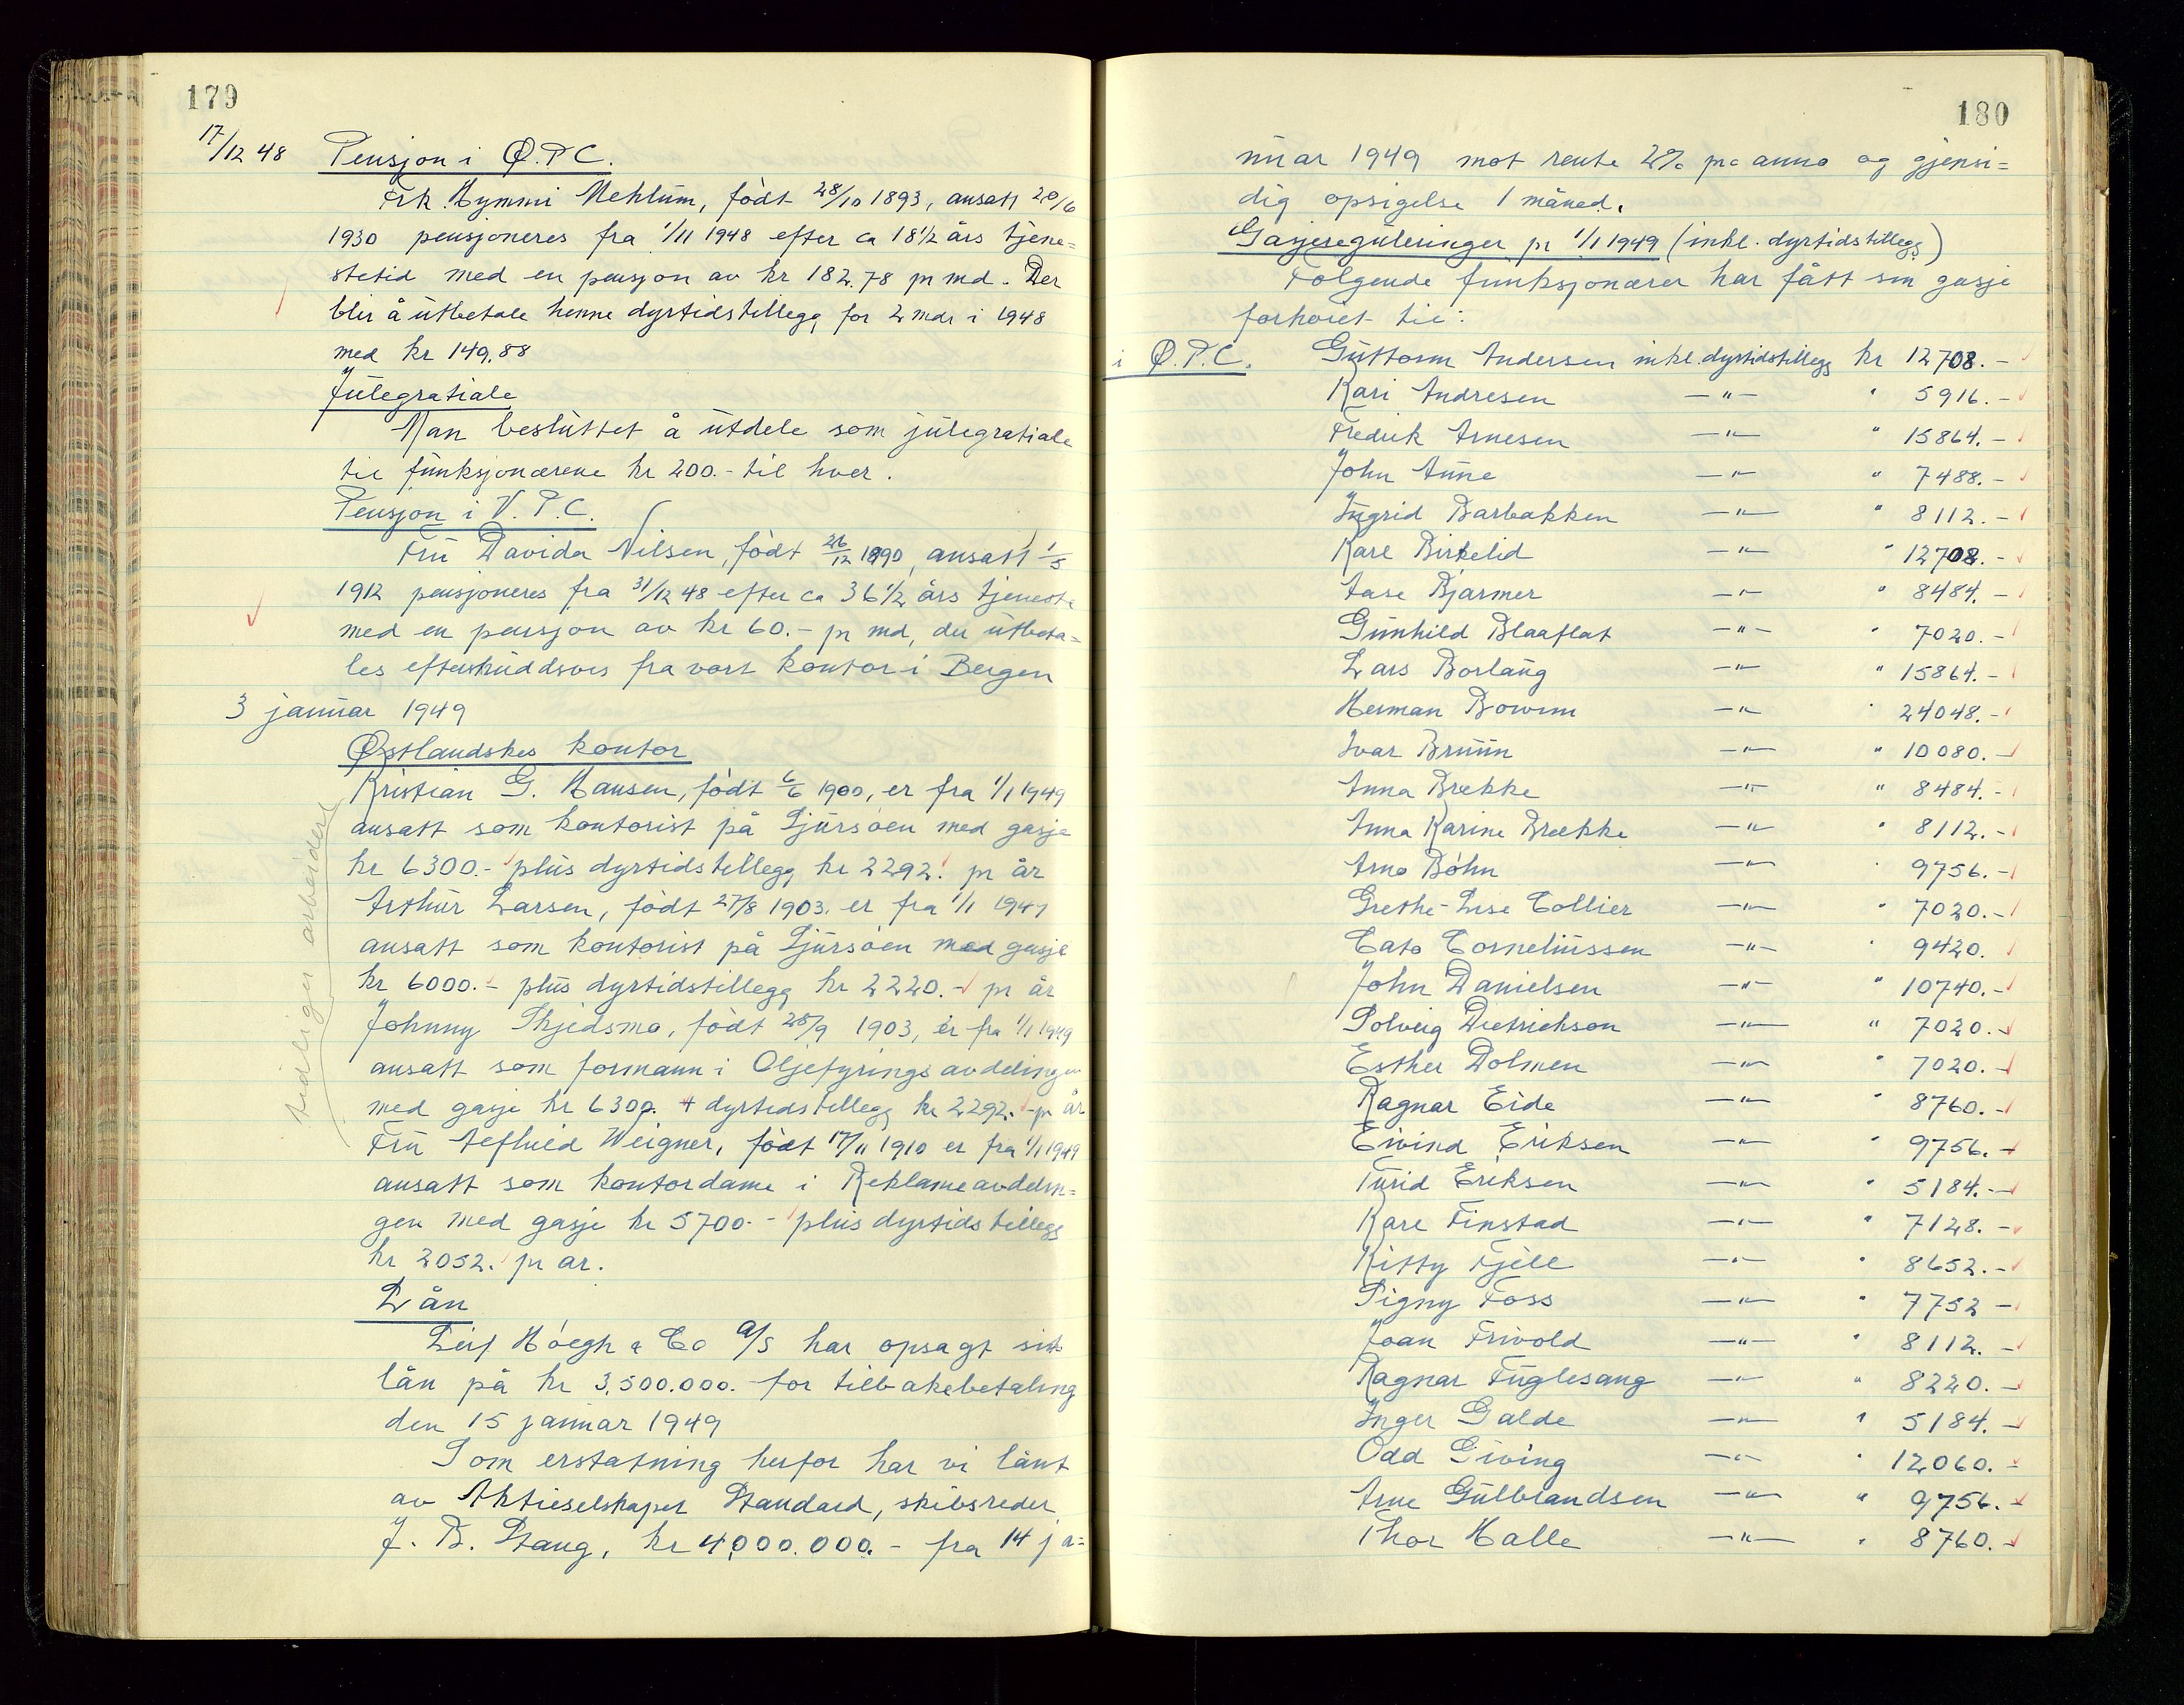 179
17/12 48 Pensjon i Ø.P.C.
Frk. Mymmi Mehlum, født 28/10 1893, ansatt 20/6
1930 pensjoneres fra 1/11 1948 efter ca 18 1/2 års tjene=
stetid med en pensjon av kr 182.78 pr md. Der
blir å utbetale henne dyrtidstillegg for 2 mdr i 1948
med kr 149.88
Julegratiale
Man besluttet å utdele som julegratiale
til funksjonærene kr 200.- til hver.
Pensjon i V.P.C.
Fru Davida Nilsen, født 26/12 1890, ansatt 1/5
1912 pensjoneres fra 31/12 48 efter ca 36 1/2 års tjeneste
med en pensjon av kr 60.- pr md, der utbeta=
les efterskuddsvis fra vort kontor i Bergen
3 januar 1949
Østlandskes kontor
Kristian G. Hansen, født 6/6 1900, er fra 1/1 1949
ansatt som kontorist på Sjursøen med gasje
kr 6300.- plus dyrtidstillegg kr 2292. pr år
Arthur Larsen, født 27/8 1903. er fra 1/1 1949
ansatt som kontorist på Sjursøen med gasje
kr 6000.- plus dyrtidstillegg kr 2220.- pr år
Johnny Skjedsmo, født 28/9 1903, er fra 1/1 1949
ansatt som formann i Oljefyringsavdelingen
med gasje kr 6300. + dyrtidstillegg kr 2292.- pr år
tidligere arbeidere
Fru Weigner, født 17/11 1910 er fra 1/1 1949
ansatt som kontordame i Reklameavdelin=
gen med gasje kr 5700.- plus dyrtidstillegg
kr 2052. pr år.
Lån
Leif Höegh & Co A/S har opsagt sitt
lån på kr 3.500.000.- for tilbakebetaling
den 15 januar 1949
Som erstatning herfor har vi lånt
av Aktieselskapet Standard, skibsreder
J. B. Stang, kr 4.000.000.- fra 14 ja=
180
nuar 1949 mot rente 2% pro anno og gjensi=
dig opsigelse 1 måned.
Gasjereguleringer pr 1/1 1949 (inkl. dyrtidstillegg)
Følgende funksjonærer har fått sin gasje
forhøiet til:
i Ø.P.C. Guttorm Andersen inkl. dyrtidstillegg kr 12708.-
Kari Andresen -"- " 5916.-
Fredrik Arnesen -"- " 15864.-
John Aune -"- " 7488.-
Ingrid Barbakken -"- " 8112.-
Kare Birkelid -"- " 12708.-
Aase Bjarmer -"- " 8484.-
Gunhild Blaaflat -"- " 7020.-
Lars Borlaug -"- " 15864.-
Herman Bowim -"- " 24048.-
Ivar Bruun -"- " 10080.-
Anna Brekke -"- " 8484.-
Anna Karine Brække -"- " 8112.-
Arne Bøhn -"- " 9756.-
Grethe-Lise Collier -"- " 7020.-
Cato Corneliussen -"- " 9420.
John Danielsen -"- " 10740.-
Solveig Dietrichson -"- " 7020.-
Esther Dolmen -"- " 7020.-
Ragnar Eide -"- " 8760.-
Eivind Eriksen -"- " 9756.-
Turid Eriksen -"- " 5184.-
Kare Finstad -"- " 7128.-
Kitty Fjell -"- " 8652.-
Signy Foss -"- " 7752 -
Joan Frivold -"- " 8112.-
Ragnar Fuglesang -"- " 8220.-
Inger Galde -"- " 5184.-
Odd Giving -"- " 12060.-
Arne Gulbrandsen -"- " 9756.-
Thor Halle -"- " 8760.-